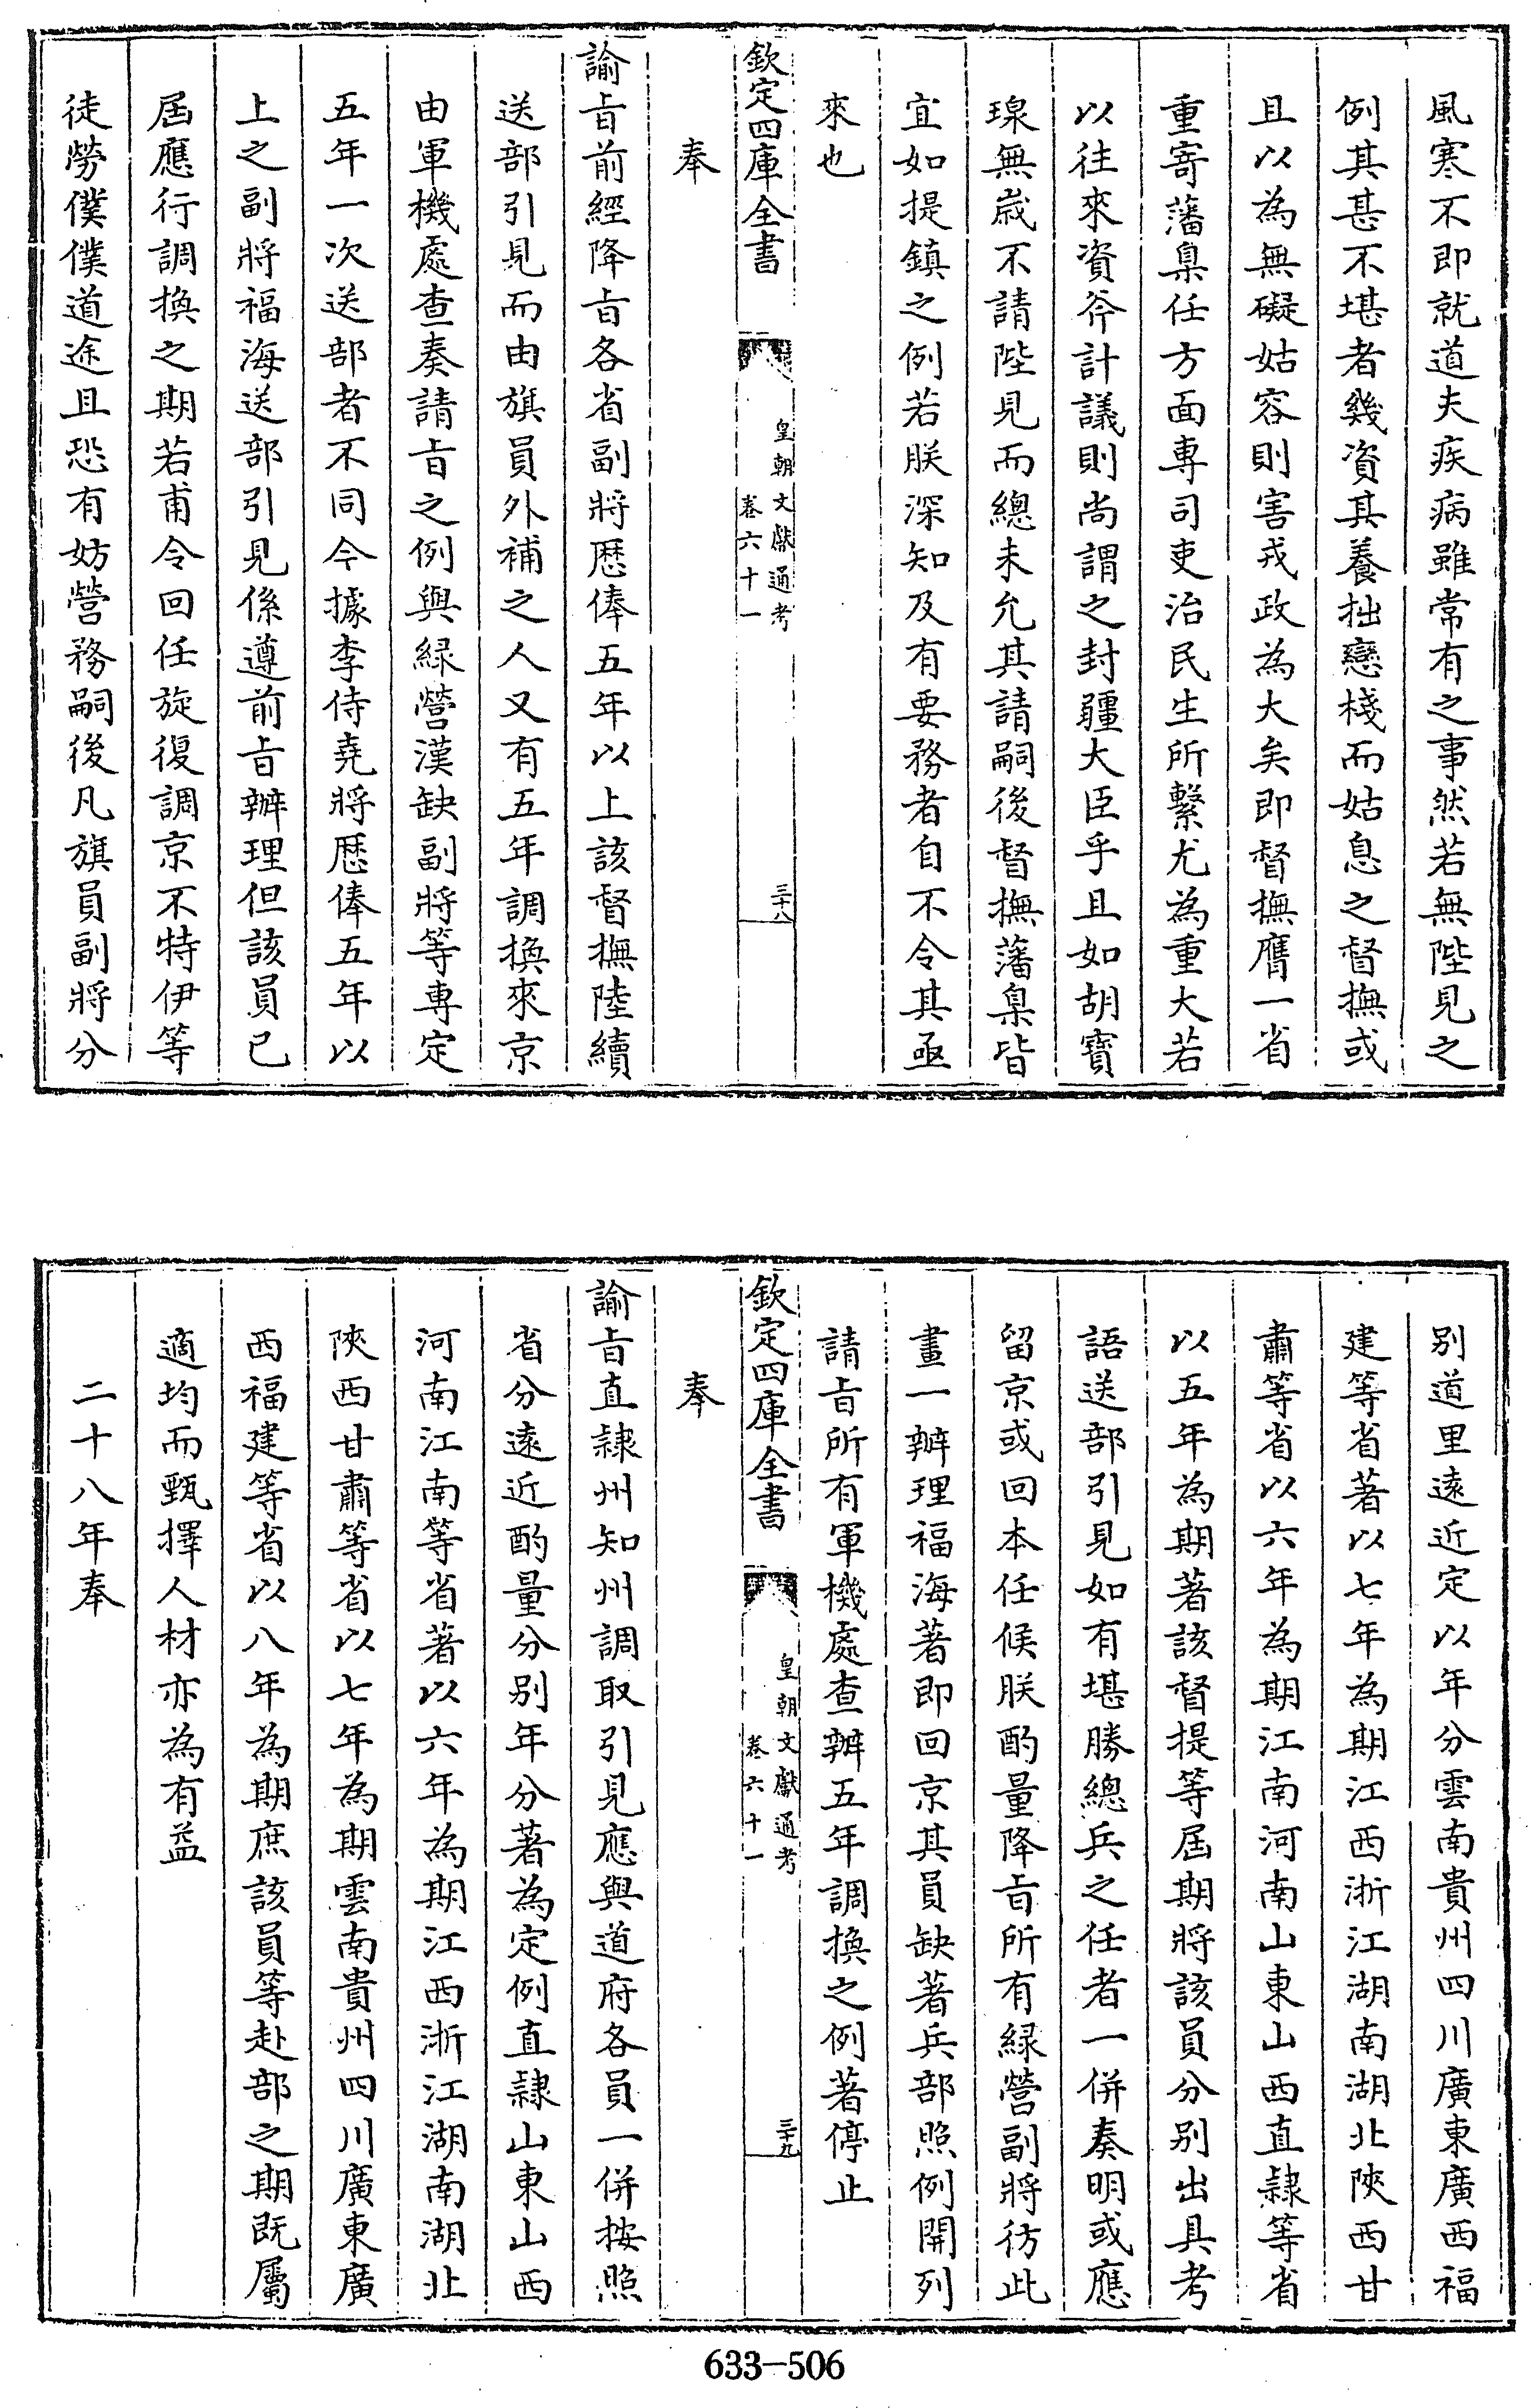 風寒不即就道夫疾病雖常有之事然若無陛見之
例其甚不堪者幾資其養拙戀棧而姑息之督撫或
且以為無礙姑容則害戎政為大矣即督撫膺一省
重寄藩臬任方面専司吏治民生所繫尤為重大若
以往來資斧計議則尚謂之封疆大臣乎且如胡寶
瑔無歳不請陛見而總未允其請嗣後督撫藩臬皆
宜如提鎮之例若朕深知及有要務者自不令其亟
來也
欽定四庫全書
皇朝文獻通考
卷六十一
三十八
奉
諭㫖前經降㫖各省副將歴俸五年以上該督撫陸續
送部引見而由旗員外補之人又有五年調換來京
由軍機處查奏請㫖之例與緑營漢缺副將等専定
五年一次送部者不同今據李侍堯將歴俸五年以
上之副將福海送部引見係遵前㫖辦理但該員已
届應行調換之期若甫令回任旋復調京不特伊等
徒勞僕僕道途且恐有妨營務嗣後凡旗員副將分
别道里遠近定以年分雲南貴州四川廣東廣西福
建等省著以七年為期江西浙江湖南湖北陜西甘
肅等省以六年為期江南河南山東山西直隷等省
以五年為期著該督提等届期將該員分别出具考
語送部引見如有堪勝總兵之任者一併奏明或應
留京或回本任候朕酌量降㫖所有緑營副將彷此
畫一辦理福海著即回京其員缺著兵部照例開列
請㫖所有軍機處查辦五年調換之例著停止
欽定四庫全書
皇朝文獻通考
卷六十一
三十九
奉
諭㫖直隷州知州調取引見應與道府各員一併按照
省分遠近酌量分别年分著為定例直隷山東山西
河南江南等省著以六年為期江西浙江湖南湖北
陜西甘肅等省以七年為期雲南貴州四川廣東廣
西福建等省以八年為期庶該員等赴部之期既屬
適均而甄擇人材亦為有益
二十八年奉
633-506